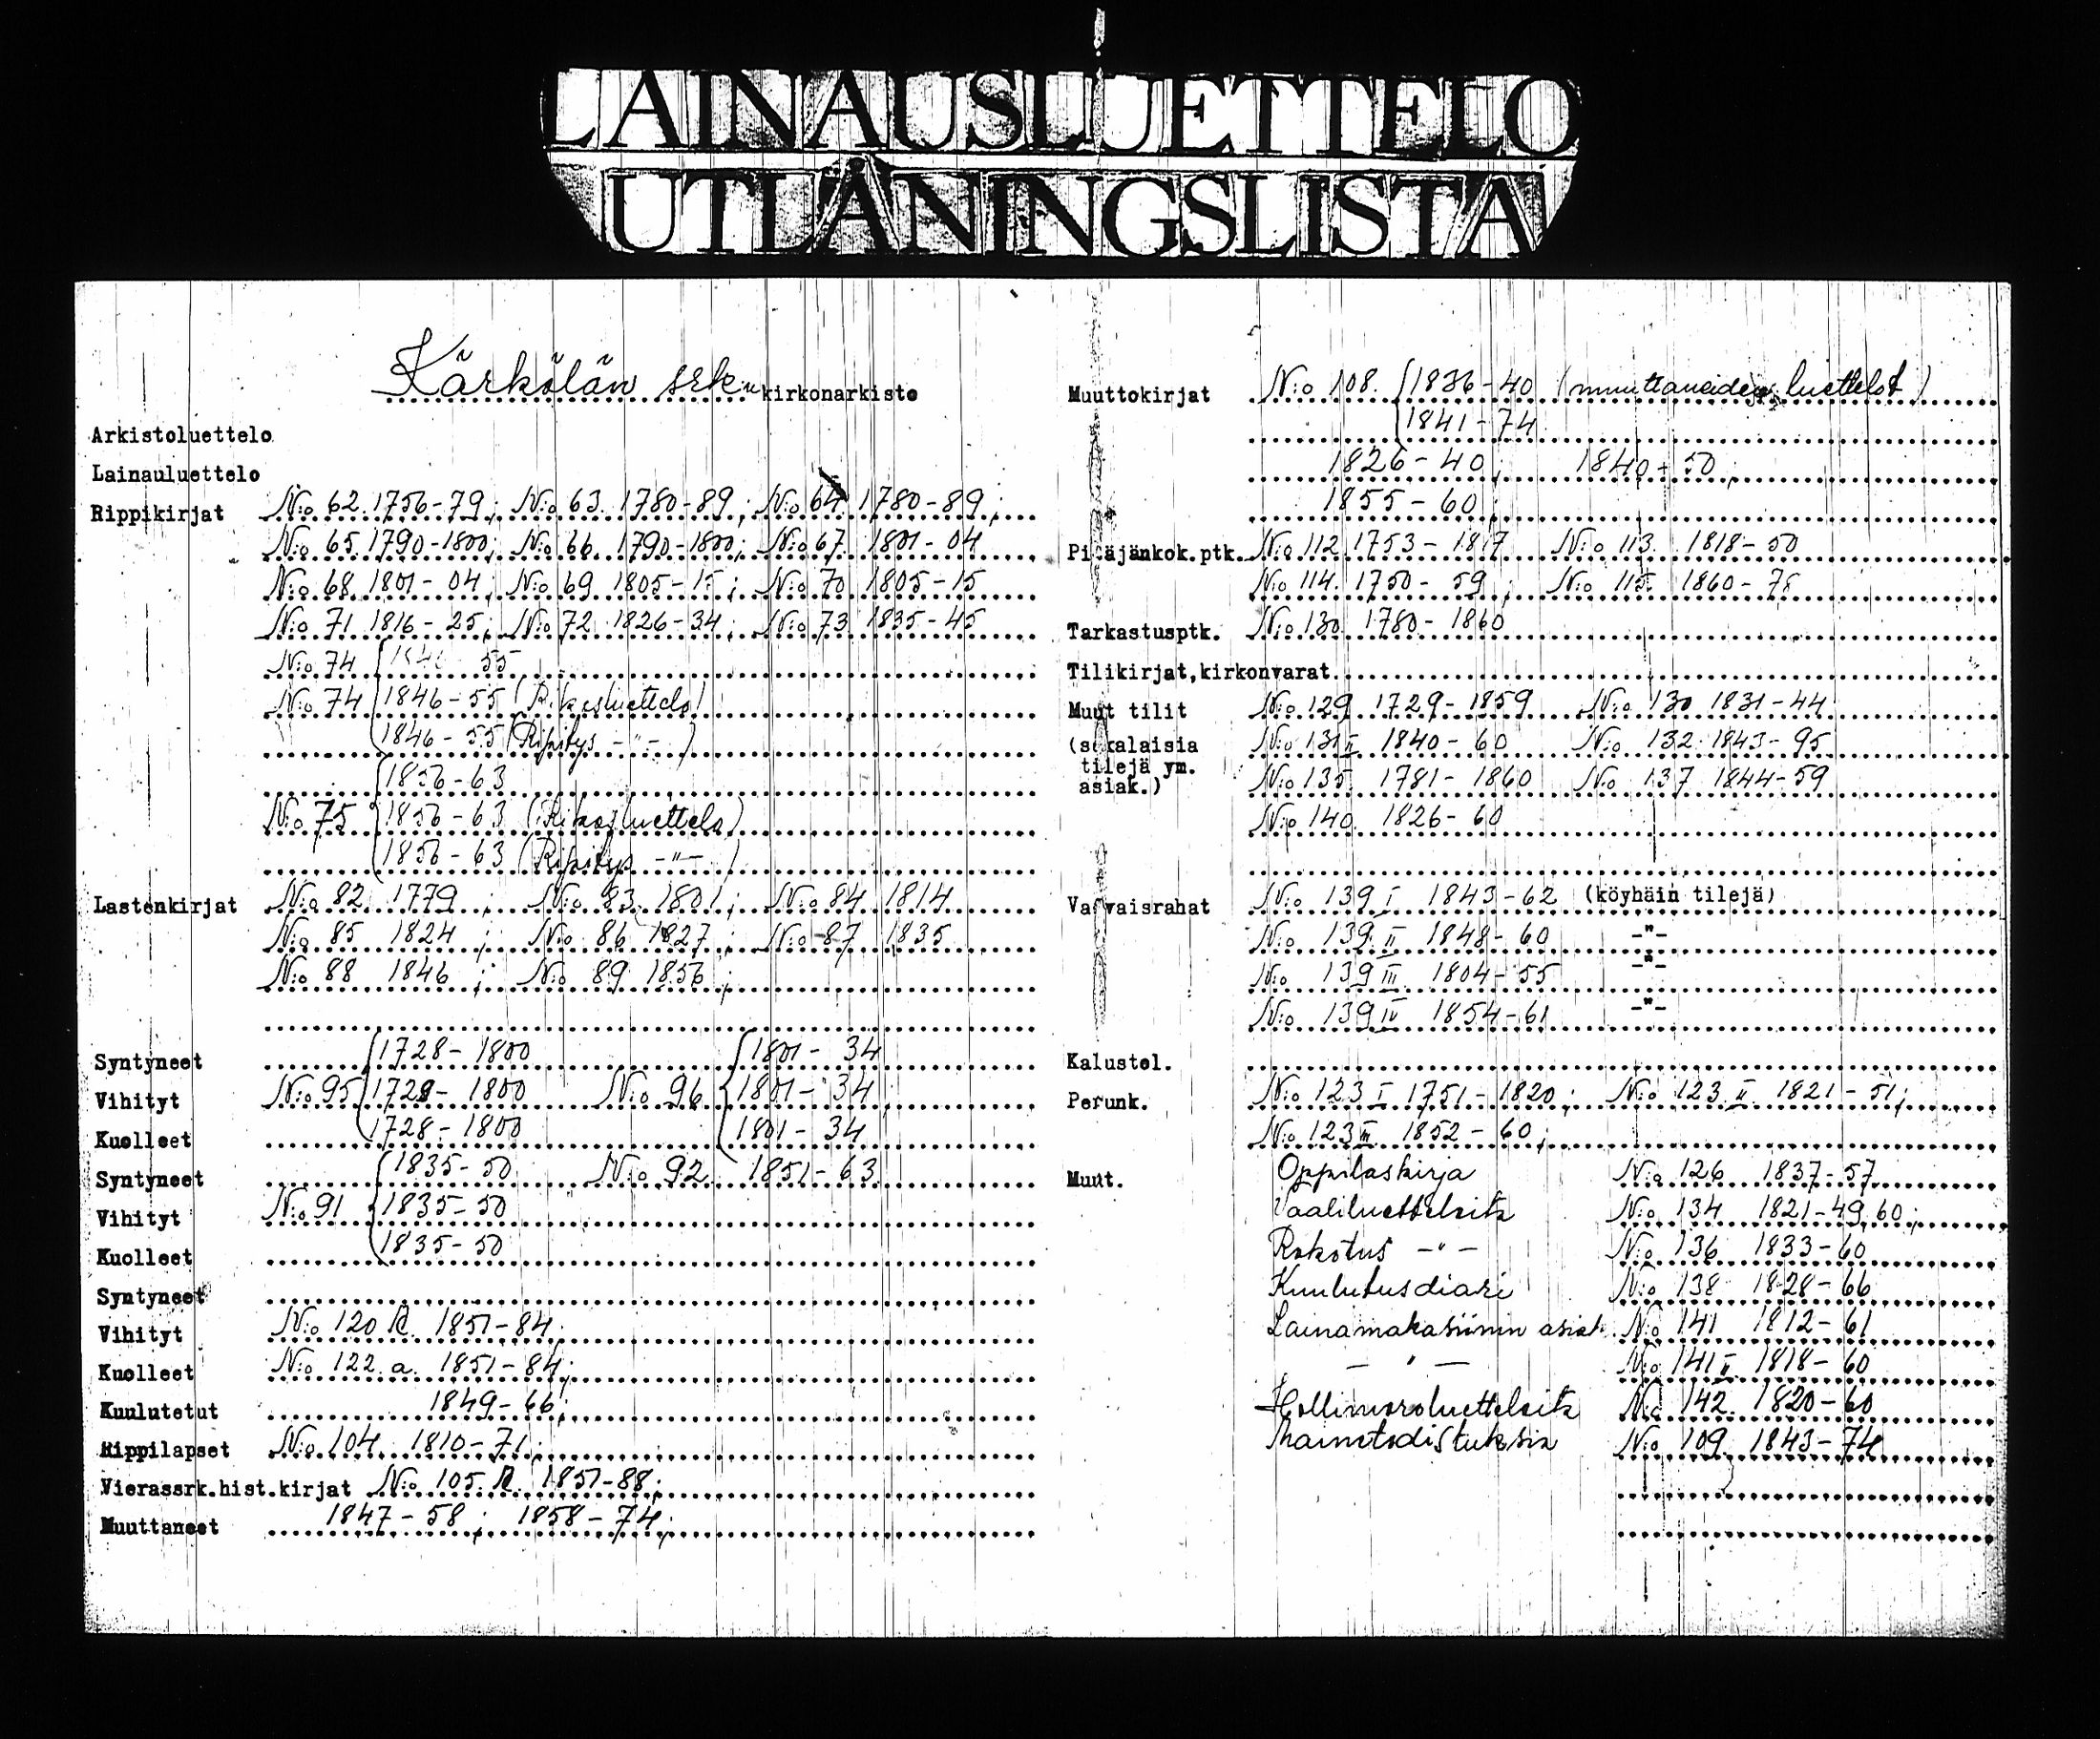 LAINAUSLUETTELO
UTLÅNINGSLISTA
Kärkölän srk:n kirkonarkisto
Arkistoluettelo
Lainauluettelo
Rippikirjat N:o 62 1756-79; N:o 63 1780-89; N:o 64 1780-89;
N:o 65 1790-1800; N:o 66 1790-1800; N:o 67 1801-04
N:o 68 1801-04; N:o 69 1805-15; N:o 70 1805-15
N:o 71 1816-25; N:o 72 1826-34; N:o 73 1835-45
N:o 74 1846-55
N:o 74 1846-55 (Rikosluettelo)
1846-55 (Ripitys -"-)
1856-63
N:o 75 1856-63 (Rikosluettelo)
1856-63 (Ripitys -"-)
Lastenkirjat N:o 82 1779; N:o 83 1801; N:o 84 1814
N:o 85 1824; N:o 86 1827; N:o 87 1835
N:o 88 1846; N:o 89 1856;
Syntyneet 1728-1800 1801-34
Vihityt N:o 95 1728-1800 N:o 96 1801-34
Kuolleet 1728-1800 1801-34
Syntyneet 1835-50 N:o 92 1851-63
Vihityt N:o 91 1835-50
Kuolleet 1835-50
Syntyneet
Vihityt N:o 120 1851-84
Kuolleet N:o 122 a 1851-84;
Kuulutetut 1849-66;
Rippilapset N:o 104 1810-71;
Vierassrk.hist.kirjat N:o 105 1851-88;
Muuttaneet 1847-58; 1858-74;
Muuttokirjat N:o 108. 1836-40 (muuttaneiden luettelot)
1841-74
1826-40; 1840-50;
1855-60;
Pitäjänkok.ptk. N:o 112 1753-1817 N:o 113 1818-50
N:o 114 1750-59; N:o 115 1860-78
Tarkastusptk. N:o 130 1780-1860
Tilikirjat,kirkonvarat
Muut tilit N:o 129 1729-1859 N:o 130 1831-44
(sekalaisia N:o 131 II 1840-60 N:o 132 1843-95
tilejä ym.
asiak.) N:o 135 1781-1860 N:o 137 1844-59
N:o 140 1826-60
Vaivaisrahat N:o 139 I 1843-62 (köyhäin tilejä)
N:o 139 II 1848-60 -"-
N:o 139 III 1804-55 -"-
N:o 139 IV 1854-61 -"-
Kalustel.
Perunk. N:o 123 I 1751-1820; N:o 123 II 1821-51;
N:o 123 III 1852-60;
Muut. Oppilaskirja N:o 126 1837-57
Vaaliluetteloita N:o 134 1821-49,60;
Rokotus -"- N:o 136 1833-60
Kuulutusdiari N:o 138 1828-66
Lainamakasiinin asiak. N:o 141 1812-61
-"- N:o 141 II 1818-60
Hollivuoroluetteloita N:o 142 1820-60
Mainetodistuksia N:o 109 1843-74